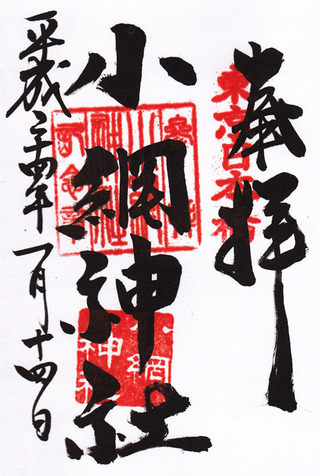 奉拝
東京日本橋
小網神社
小網
神社
平成二四年一月十四日